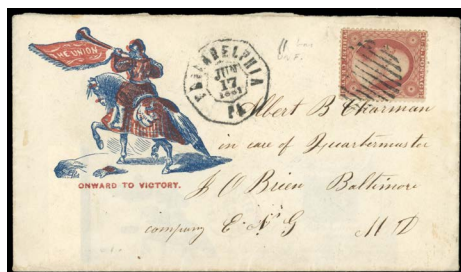 THE UNION
ONWARD TO VICTORY.
PHILADELPHIA
JUN
17
1861
PA
Albert B Charman
in care of Quartermaster
J O Brien Baltimore
company E. N G M D